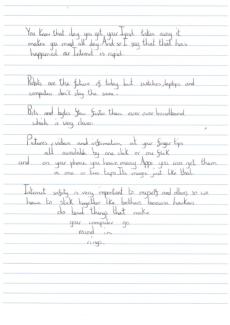 You know that day you get your Ipad taken away it
makes you mad all day. And so I say that that has
happened our Internet is rapid.
are the future of today but watches, laptops and
computers don't stay the same.
Bits and bytes flow faster than ever over broadband
which is very clever.
Pictures, videos and information at your finger tips
all available by one click or one flick
and on your phone you have many Apps you can get them
in one or two taps Its magic just like that.
Internet safety is very important to myself and others so we
have to stick together like brothers because hackers
do bad things that make
your computer go
round in
rings.